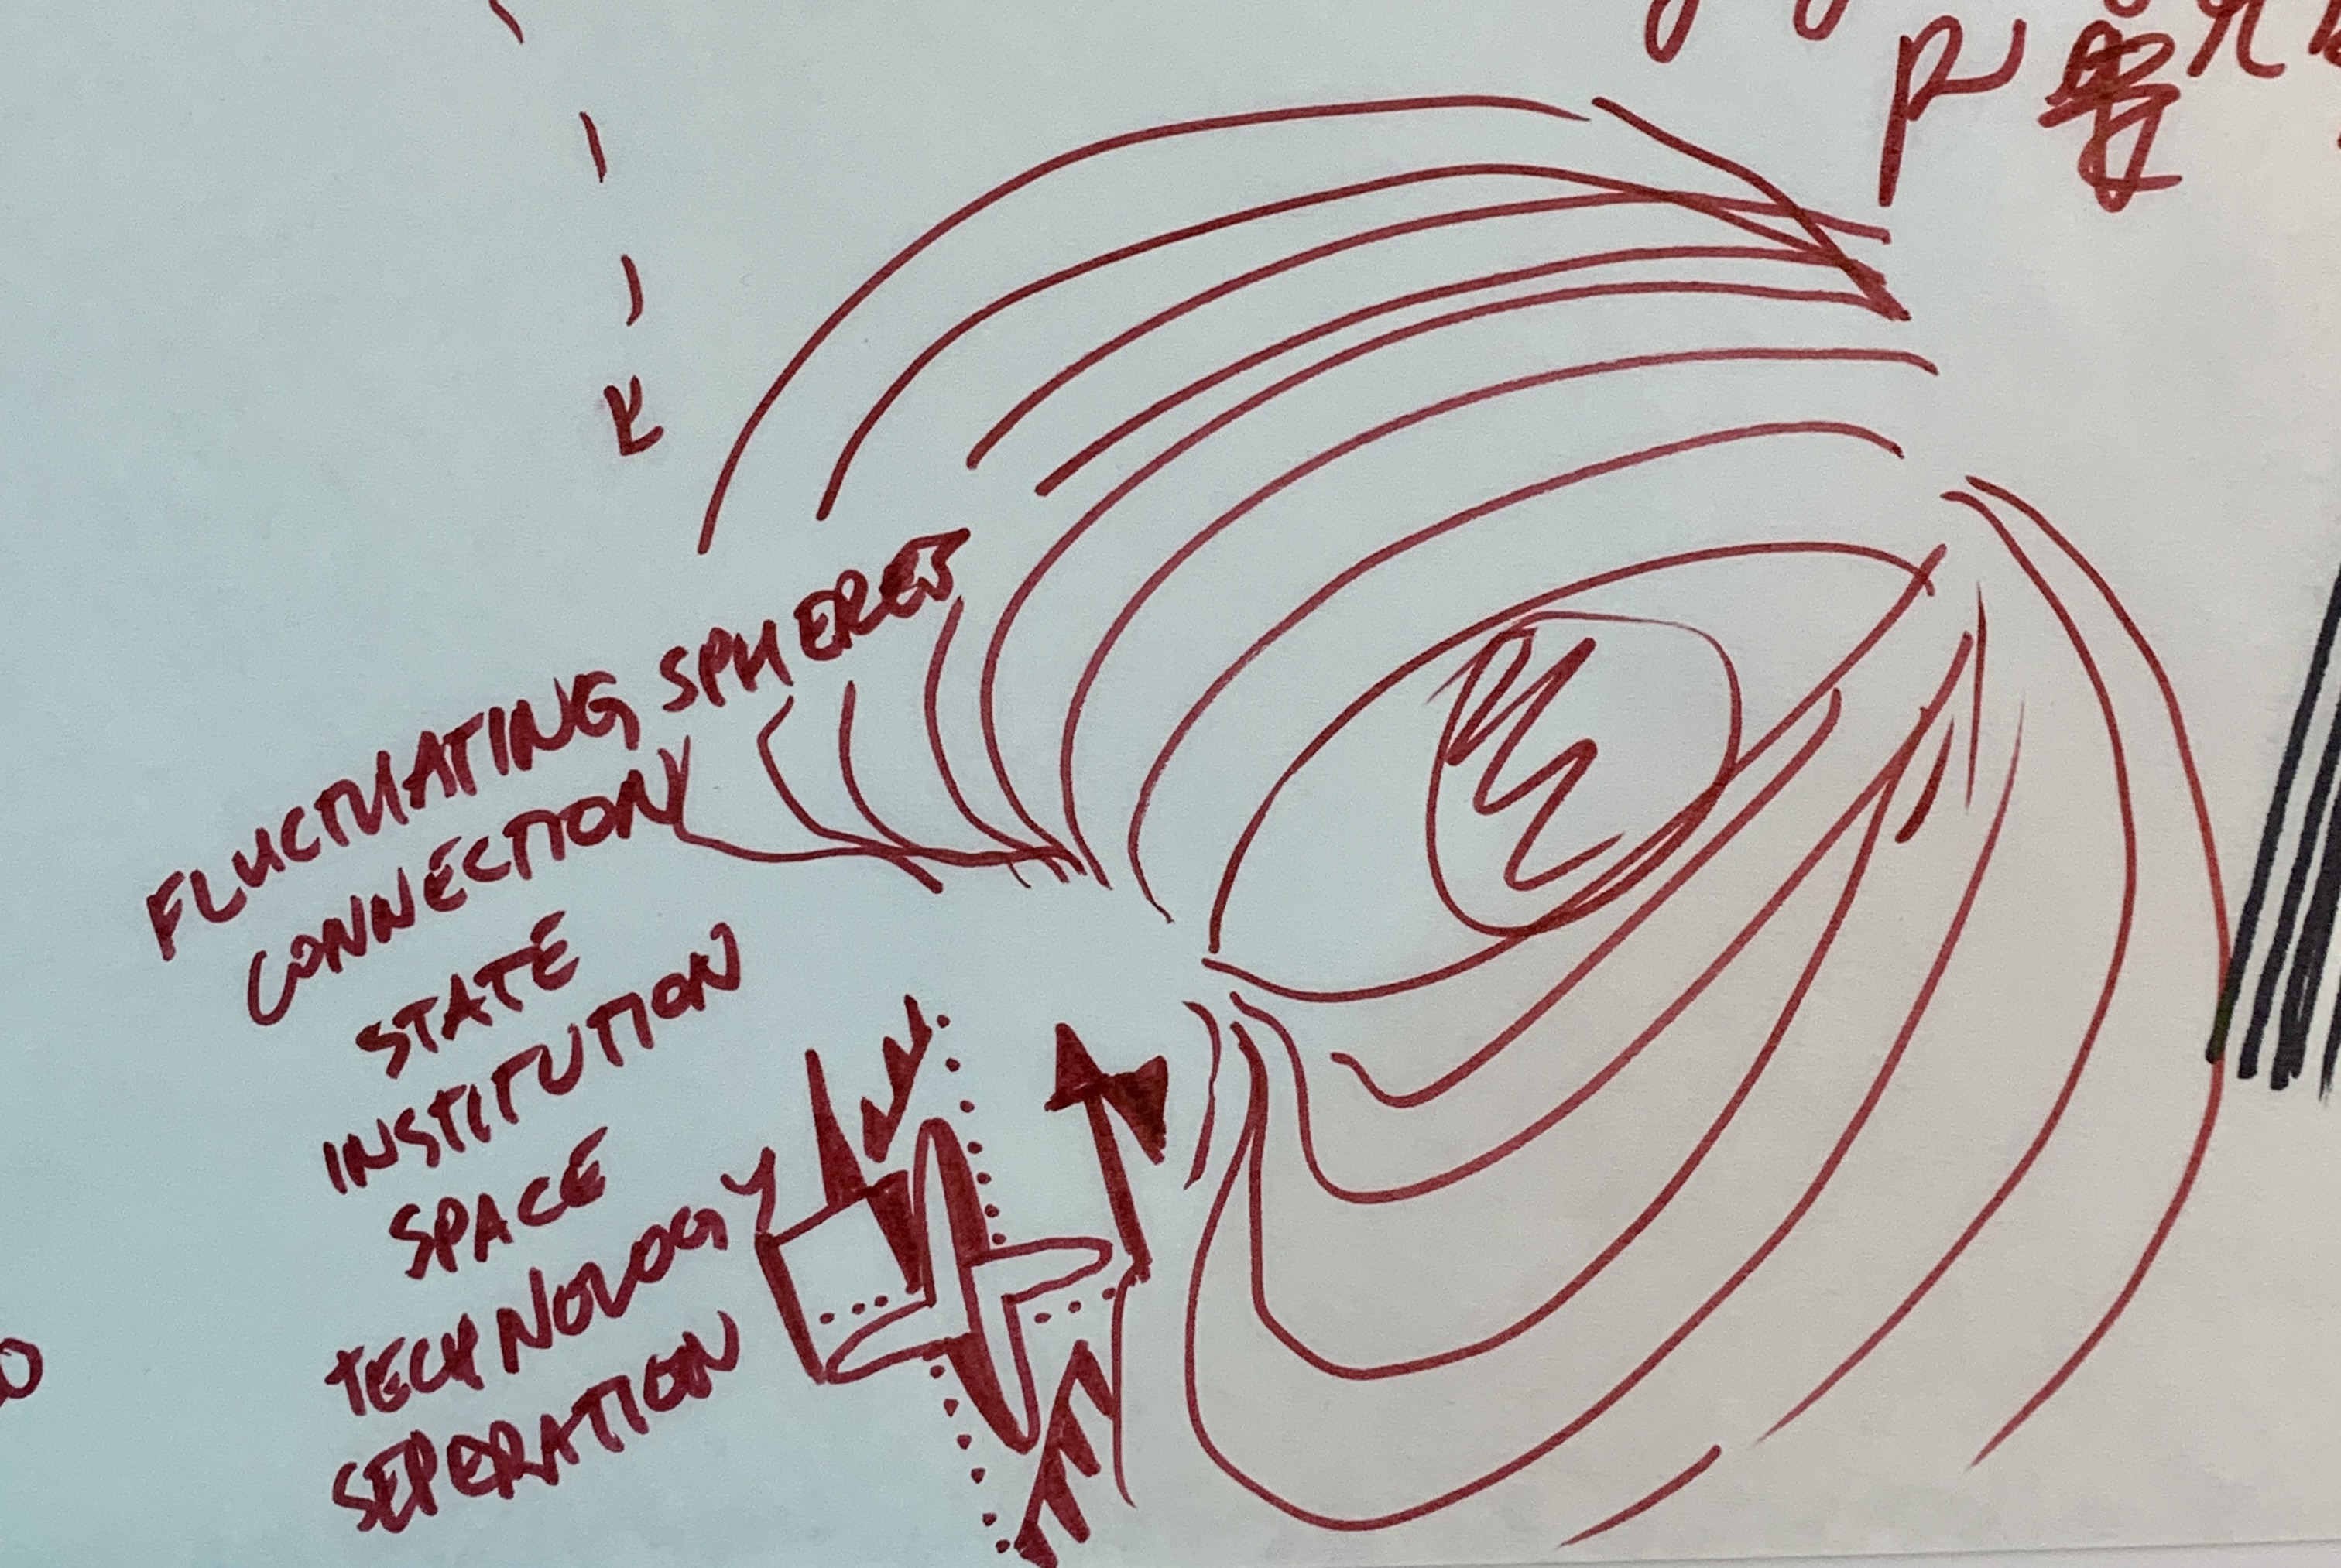 FLUCTUATING SPHERES
CONNECTION
STATE
INSTITUTION
SPACE
TECHNOLOGY
SEPERATION